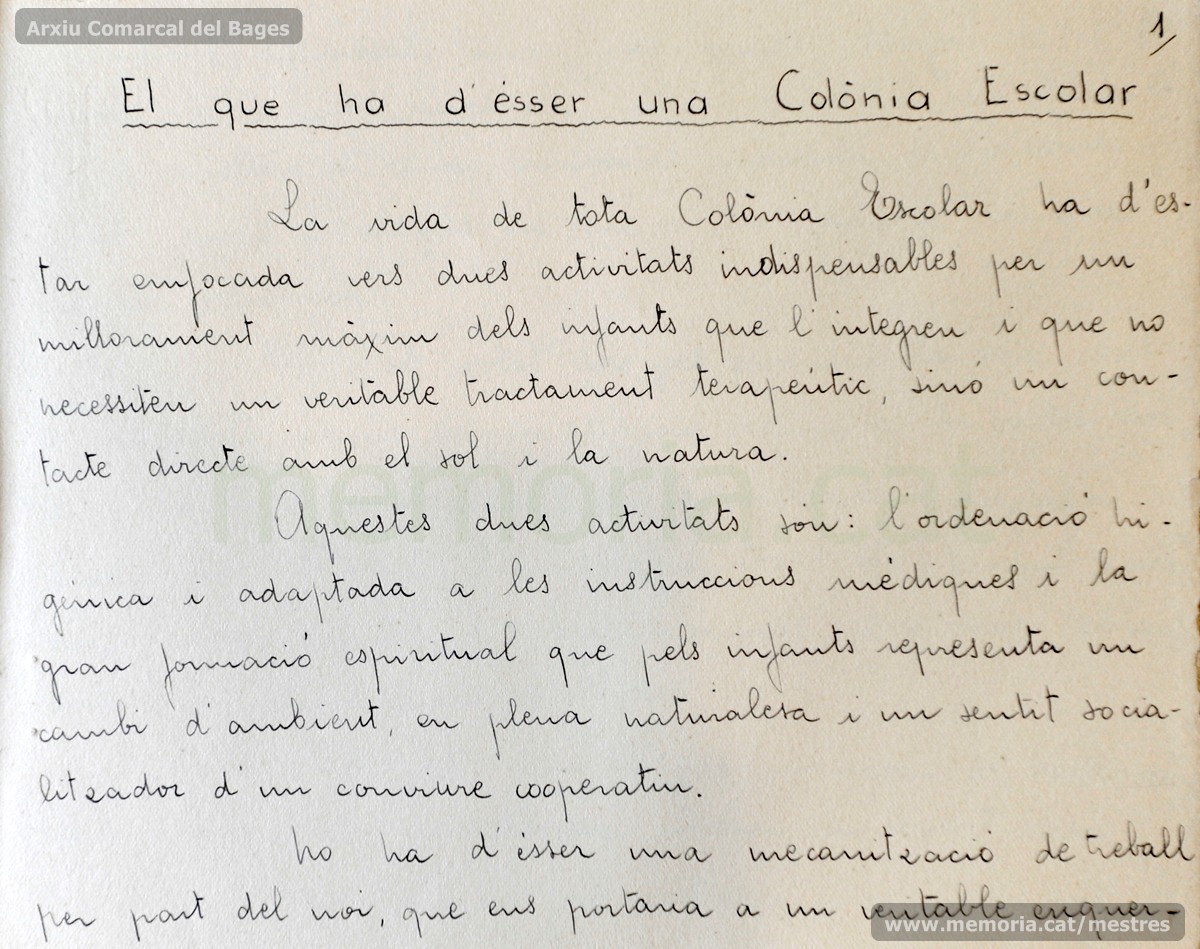 Arxiu Comarcal del Bages
1
El que ha d'ésser una Colònia Escolar
La vida de tota Colònia Escolar ha d'es-
tar enfocada vers dues activitats indispensables per un
millorament màxim dels infants que l'integren i que no
necessiten un veritable tractament terapèutic, sinó un con-
tacte directe amb el sol i la natura.
memoria.cat
Aquestes dues activitats són: l'ordenació hi-
gènica i adaptada a les instruccions mèdiques i la
gran formació espiritual que pels infants representa un
cambi d'ambient, en plena naturalesa i un sentit socia-
litzador d'un conviure cooperatiu.
No ha d'ésser una mecanització de treball
per part del noi, que ens portaria a un veritable enquer-
www.memoria.cat/mestres